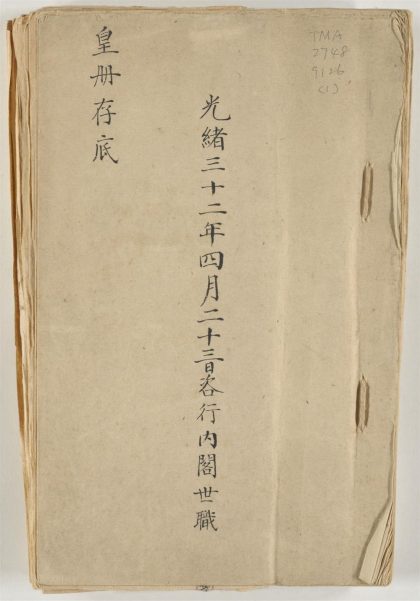 光緒三十二年四月二十三日咨行内閣世職
皇册存底
TMA
2748
9126
(1)